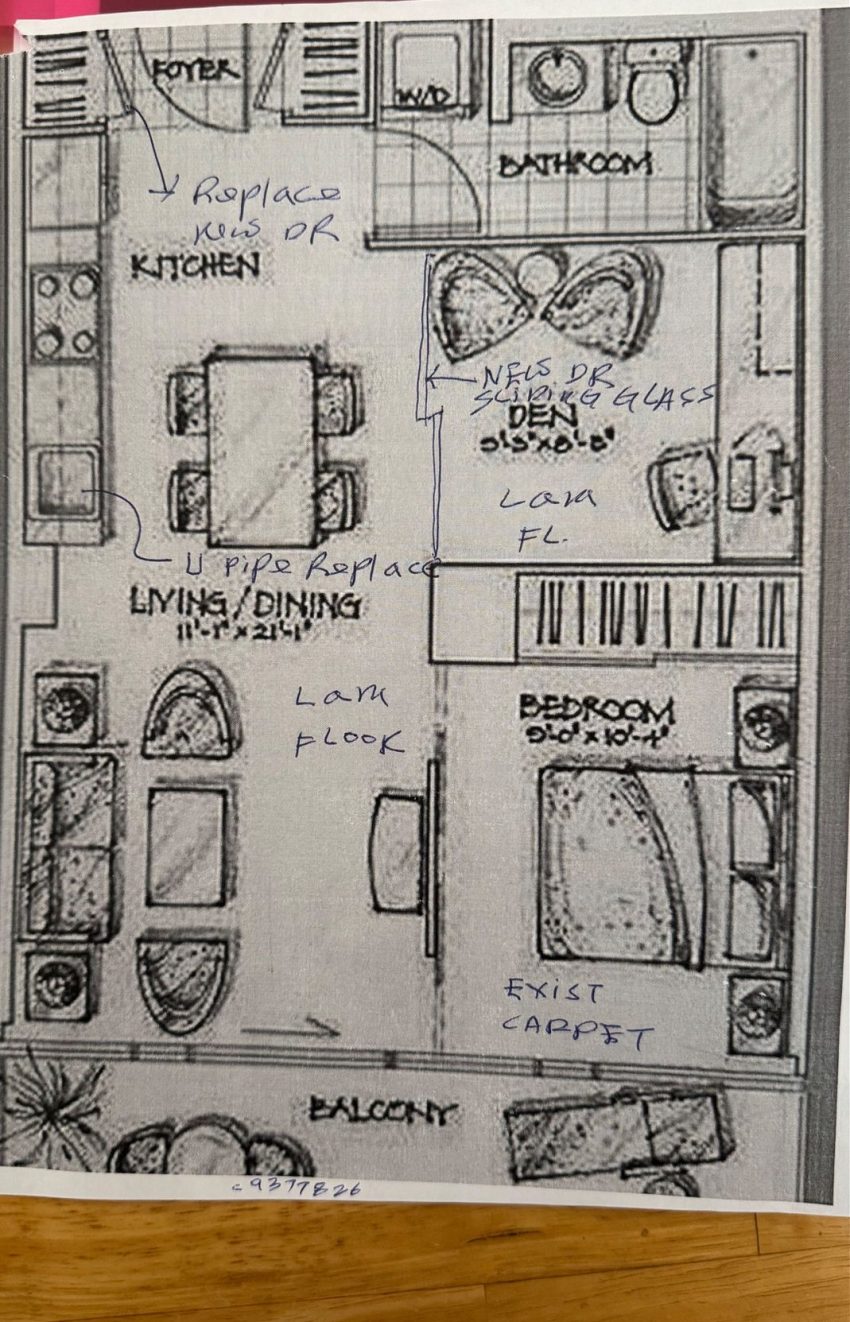 FOYER
W/D
BATHROOM
Replace
NEW DR
KITCHEN
NEW DR
SLIDING GLASS
DEN
9'-3" x 8'-8"
Lam
FL.
U Pipe Replace
LIVING/DINING
11'-1" x 21'-1"
Lam
FLOOR
BEDROOM
9'-0" x 10'-4"
EXIST
CARPET
BALCONY